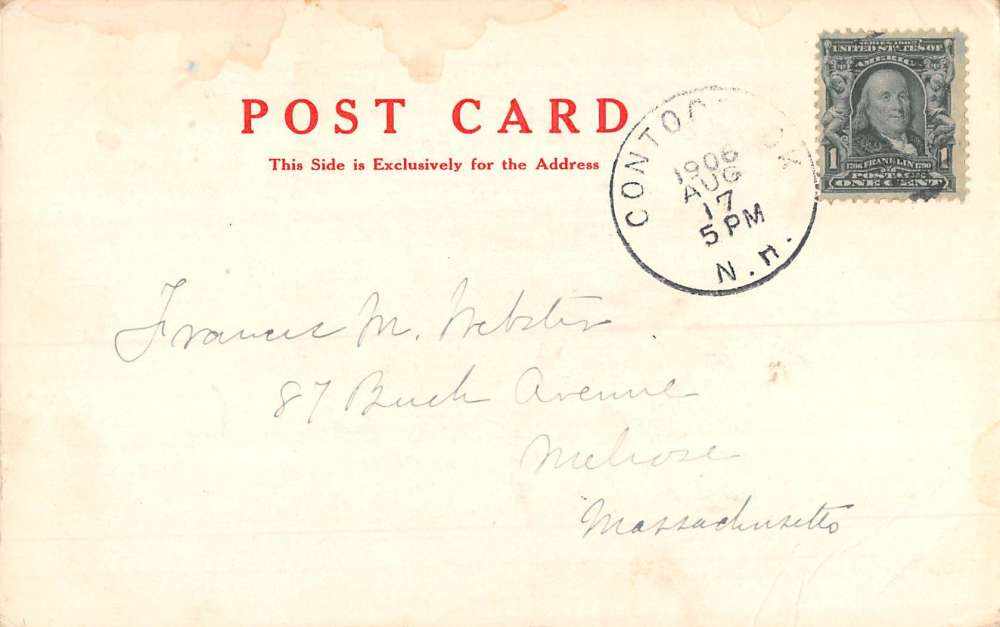 POST CARD
This Side is Exclusively for the Address
CONTOOCOOK
1906
AUG
17
5 PM
N.H.
SERIES 1902
UNITED STATES OF
AMERICA
1 1706 FRANKLIN 1790 1
POSTAGE
ONE CENT
Francis M. Webster
87 Avenue
Melrose
Massachusetts